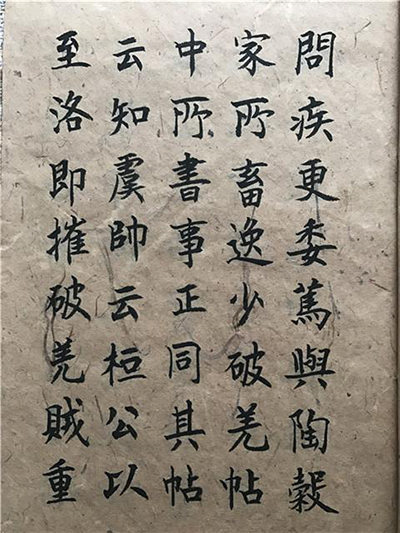 問疾更委篤與陶穀
家所畜逸少破羌帖
中所書事正同其帖
云知虞帥云桓公以
至洛即摧破羌賊重